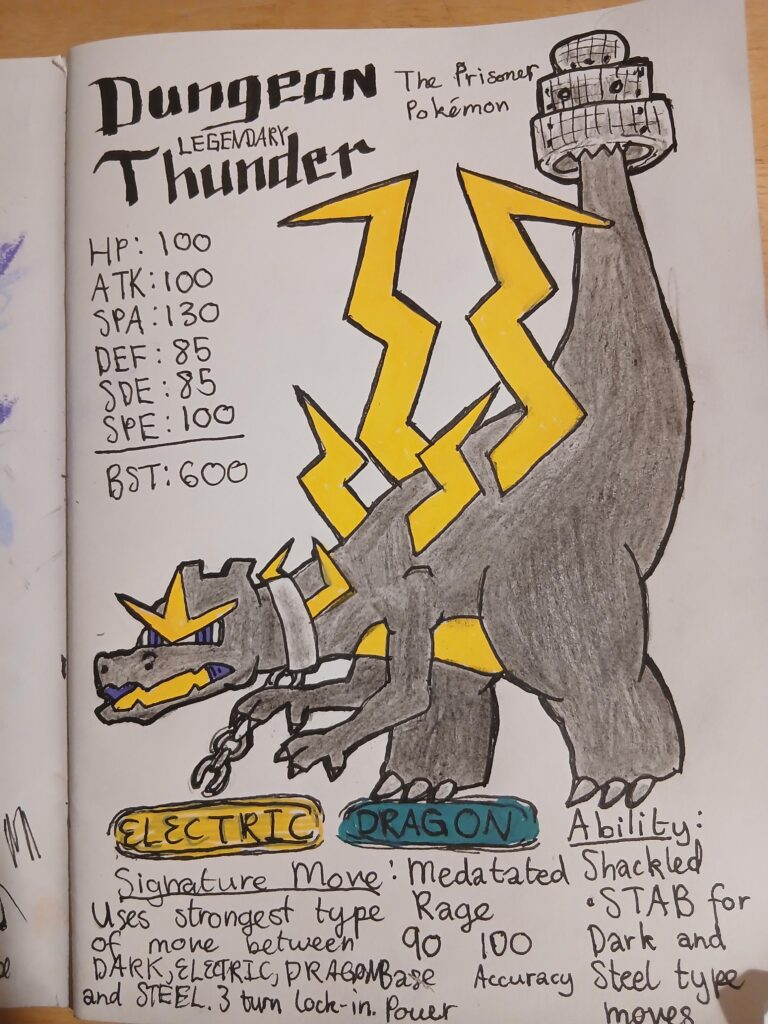 Dungeon
LEGENDARY
Thunder
The Prisoner
Pokémon
HP: 100
ATK: 100
SPA: 130
DEF: 85
SDE: 85
SPE: 100
BST: 600
ELECTRIC
DRAGON
Ability:
Shackled
• STAB for
Dark and
Steel type
moves
Signature Move: Medatated
Rage
90 100
Base Accuracy
Power
Uses strongest type
of move between
DARK, ELECTRIC, DRAGON
and STEEL. 3 turn lock-in.